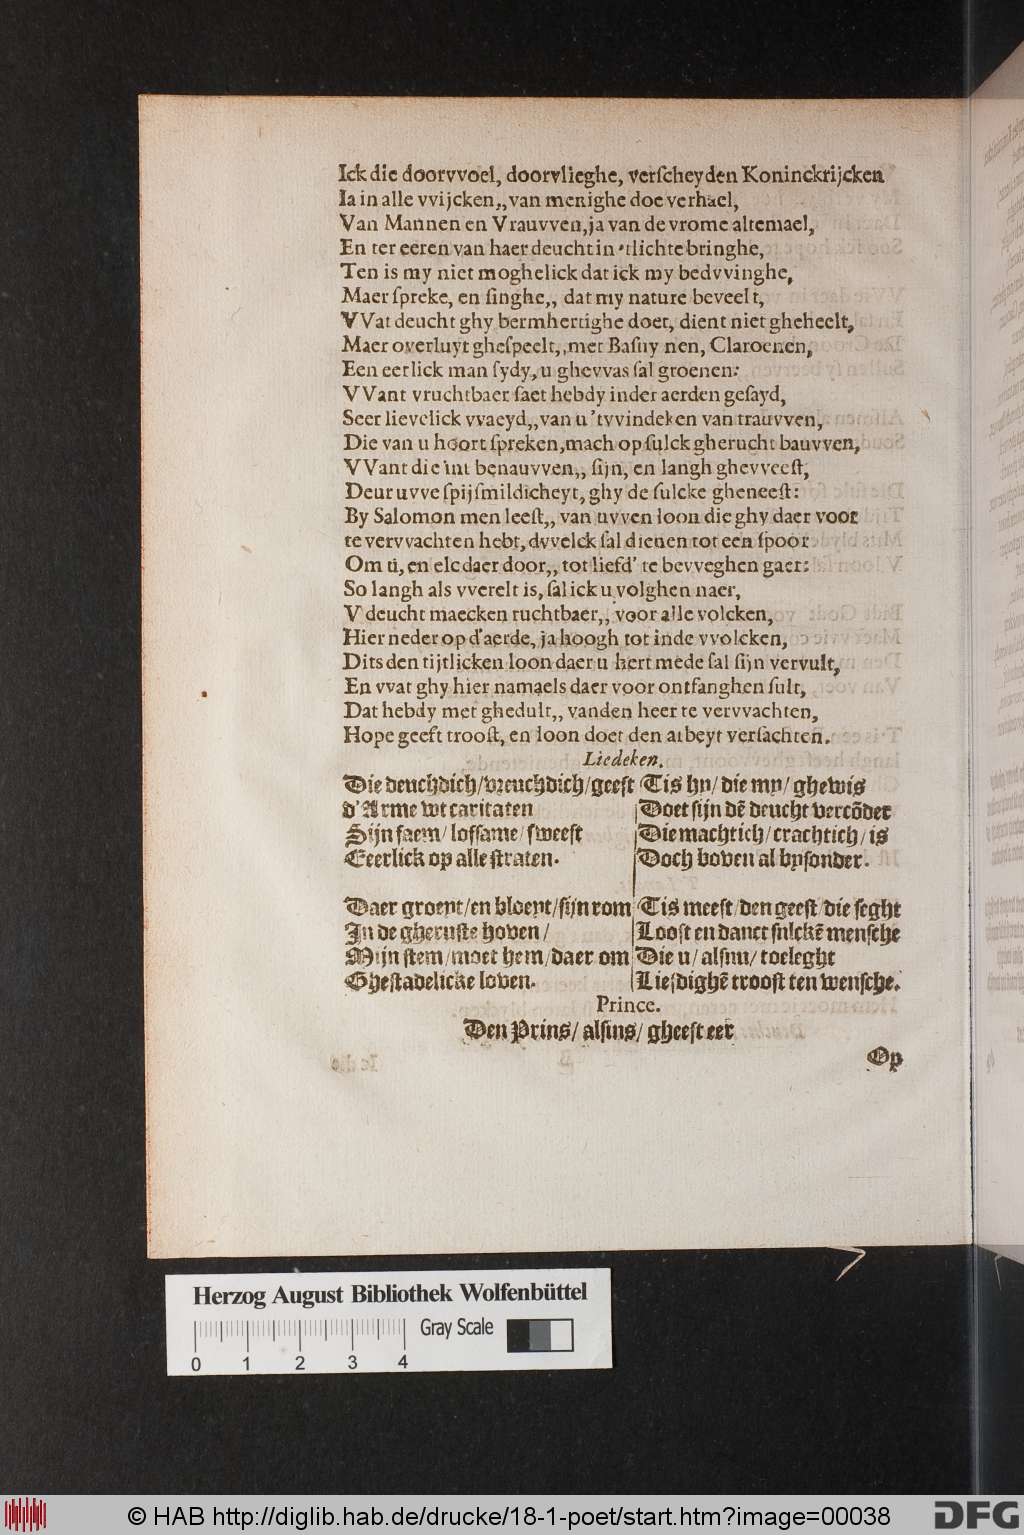 Ick die doorvvoel, doorvlieghe, verscheyden Koninckrijcken
Ia in alle vvijcken,, van menighe doe verhael,
Van Mannen en Vrauvven, ja van de vrome altemael,
En ter eeren van haer deucht in 'tlichte bringhe,
Ten is my niet moghelick dat ick my bedvvinghe,
Maer spreke, en singhe,, dat my nature beveelt,
VVat deucht ghy bermhertighe doet, dient niet gheheelt,
Maer overluyt ghespeelt,, met Basuynen, Claroenen,
Een eerlick man sydy, u ghevvas sal groenen:
VVant vruchtbaer saet hebdy inder aerden gesayd,
Seer lievelick vvaeyd,, van u 'tvvindeken van trauvven,
Die van u hoort spreken, mach op sulck gherucht bauvven,
VVant die int benauvven,, sijn, en langh ghevveest,
Deur uvve spijsmildicheyt, ghy de sulcke gheneest:
By Salomon men leest,, van uvven loon die ghy daer voor
te vervvachten hebt, dvvelck sal dienen tot een spoor
Om u, en elc daer door,, tot liefd' te bevveghen gaer:
So langh als vverelt is, sal ick u volghen naer,
V deucht maecken ruchtbaer,, voor alle volcken,
Hier neder op d'aerde, ja hoogh tot inde vvolcken,
Dits den tijtlicken loon daer u hert mede sal sijn vervult,
En vvat ghy hier namaels daer voor ontfanghen sult,
Dat hebdy met ghedult,, vanden heer te vervvachten,
Hope geeft troost, en loon doet den arbeyt versachten.
Liedeken.
Die deuchdich/vreuchdich/geest
d'Arme wt caritaten
Sijn faem/ lofsame/ sweest
Eeerlick op alle straten.
Daer groeyt/en bloeyt/sijn rom
In de gheruste hoven/
Mijn stem/moet hem/daer om
Ghestadelicke loven.
Tis hy/ die my/ ghewis
Doet sijn dē deucht vercōder
Die machtich/crachtich/is
Doch boven al bysonder.
Tis meest/den geest/die seght
Loost en danct sulckē mensche
Die u/ alsnu/ toeleght
Liesdighē troost ten wensche.
Prince.
Den Prins/ alsins/ gheest eer
Op
Herzog August Bibliothek Wolfenbüttel
Gray Scale
0 1 2 3 4
© HAB http://diglib.hab.de/drucke/18-1-poet/start.htm?image=00038
DFG